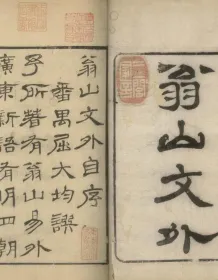 翁山文外
翁山文外自序
番禺屈大均譔
予所著有翁山易外
廣東新語有明四朝